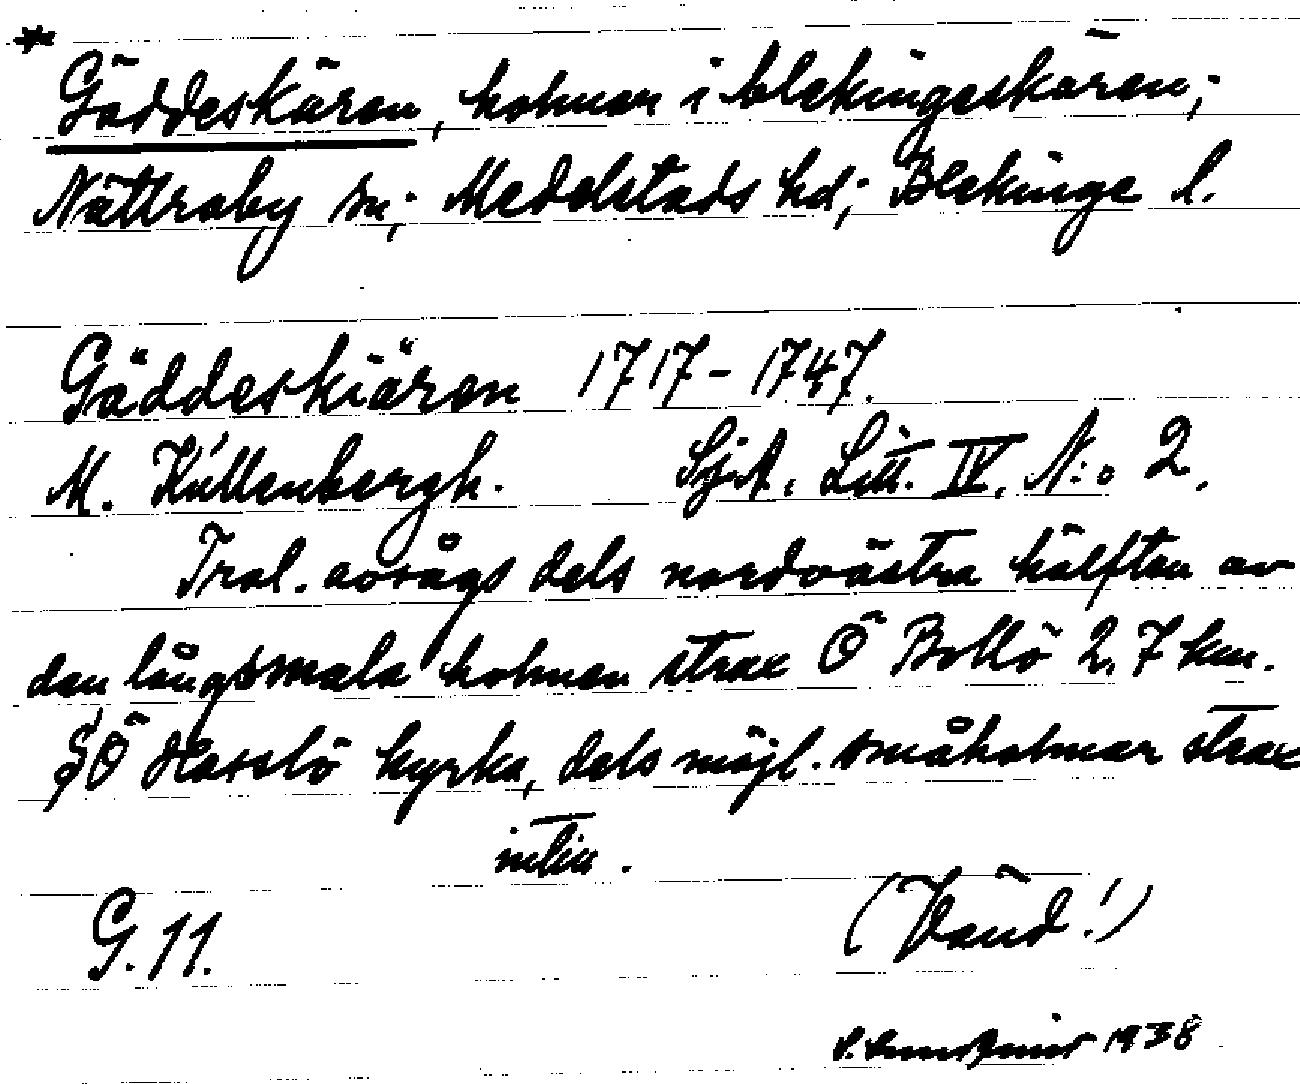 * Gäddeskären, holmar i blekingeskären;
Nättraby sn; Medelstads hd; Blekinge l.
Gäddeskiären 1717-1747.
M. Kúllenbergh. Sj.A. Litt. IV. N:o 2.
Trol. avsågs dels nordvästra hälften av
den långsmala holmen strax Ö Bollö 2,7 km.
SÖ Hasslö kyrka, dels möjl. småholmar strax
intill.
G. 11. (Vänd!)
1938